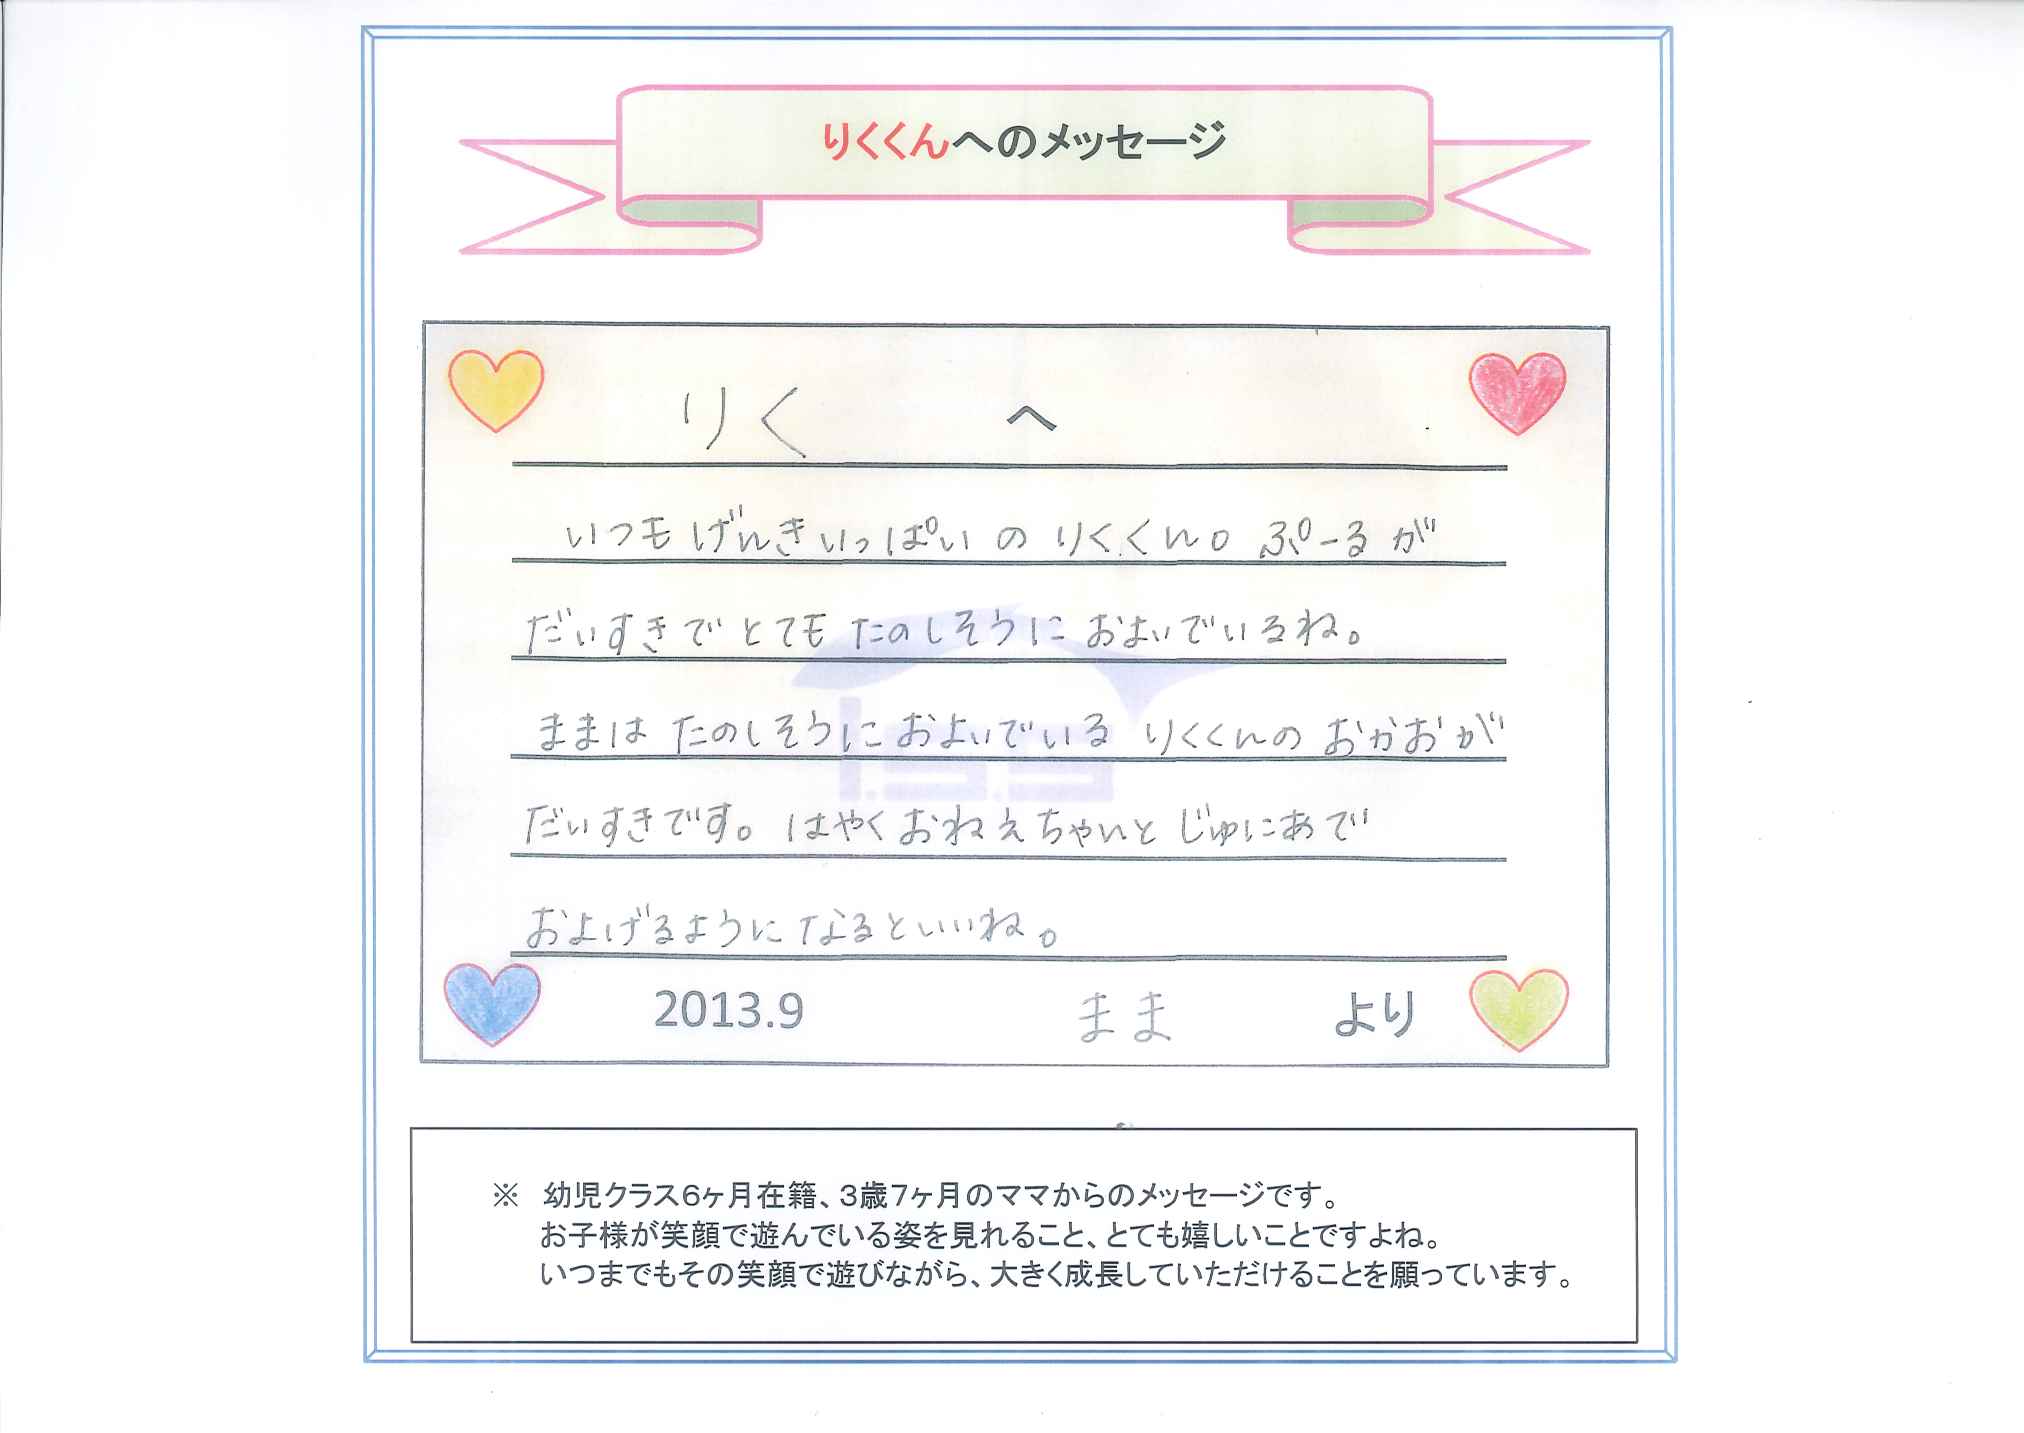 りくくんへのメッセージ
りく へ
いつも げんきいっぱい の りくくん。 ぷーる が
だいすきで とても たのしそうに およいでいるね。
ままは たのしそうに およいでいる りくくんの おかお が
だいすきです。 はやく おねえちゃんと じゅにあで
およげるように なるといいね。
2013.9 まま より
I.S.S
※ 幼児クラス6ヶ月在籍、3歳7ヶ月のママからのメッセージです。
お子様が笑顔で遊んでいる姿を見れること、とても嬉しいことですよね。
いつまでもその笑顔で遊びながら、大きく成長していただけることを願っています。